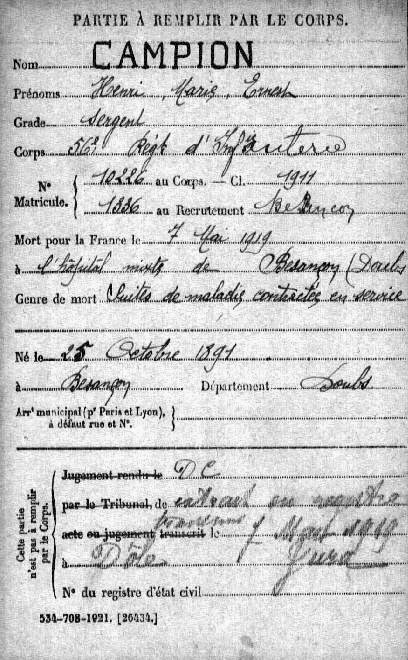 PARTIE À REMPLIR PAR LE CORPS.
Nom CAMPION
Prénoms Henri Marie, Ernest
Grade Sergent
Corps 56e Régt d'Infanterie
N° Matricule. { 10226 au Corps. — Cl. 1911
1336 au Recrutement Besançon
Mort pour la France le 7 Mai 1919
à l'hôpital mixte de Besançon (Doubs
Genre de mort Suites de maladie contractée en service
Né le 25 Octobre 1891
à Besançon Département Doubs
Arrt municipal (pr Paris et Lyon), à défaut rue et N°. }
Cette partie n'est pas à remplir par le Corps. {
Jugement rendu le DC
par le Tribunal de extrait en registre
acte ou jugement transcrit le transcrit 7 1919
à Dôle Jura
N° du registre d'état civil
534-708-1921. [26434.]